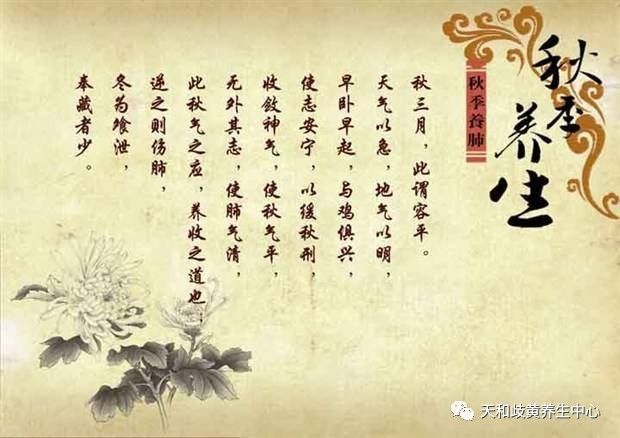 秋季养生
秋季养肺
秋三月，此谓容平。
天气以急，地气以明，
早卧早起，与鸡俱兴，
使志安宁，以缓秋刑，
收敛神气，使秋气平，
无外其志，使肺气清，
此秋气之应，养收之道也；
逆之则伤肺，
冬为飧泄，
奉藏者少。
天和歧黄养生中心